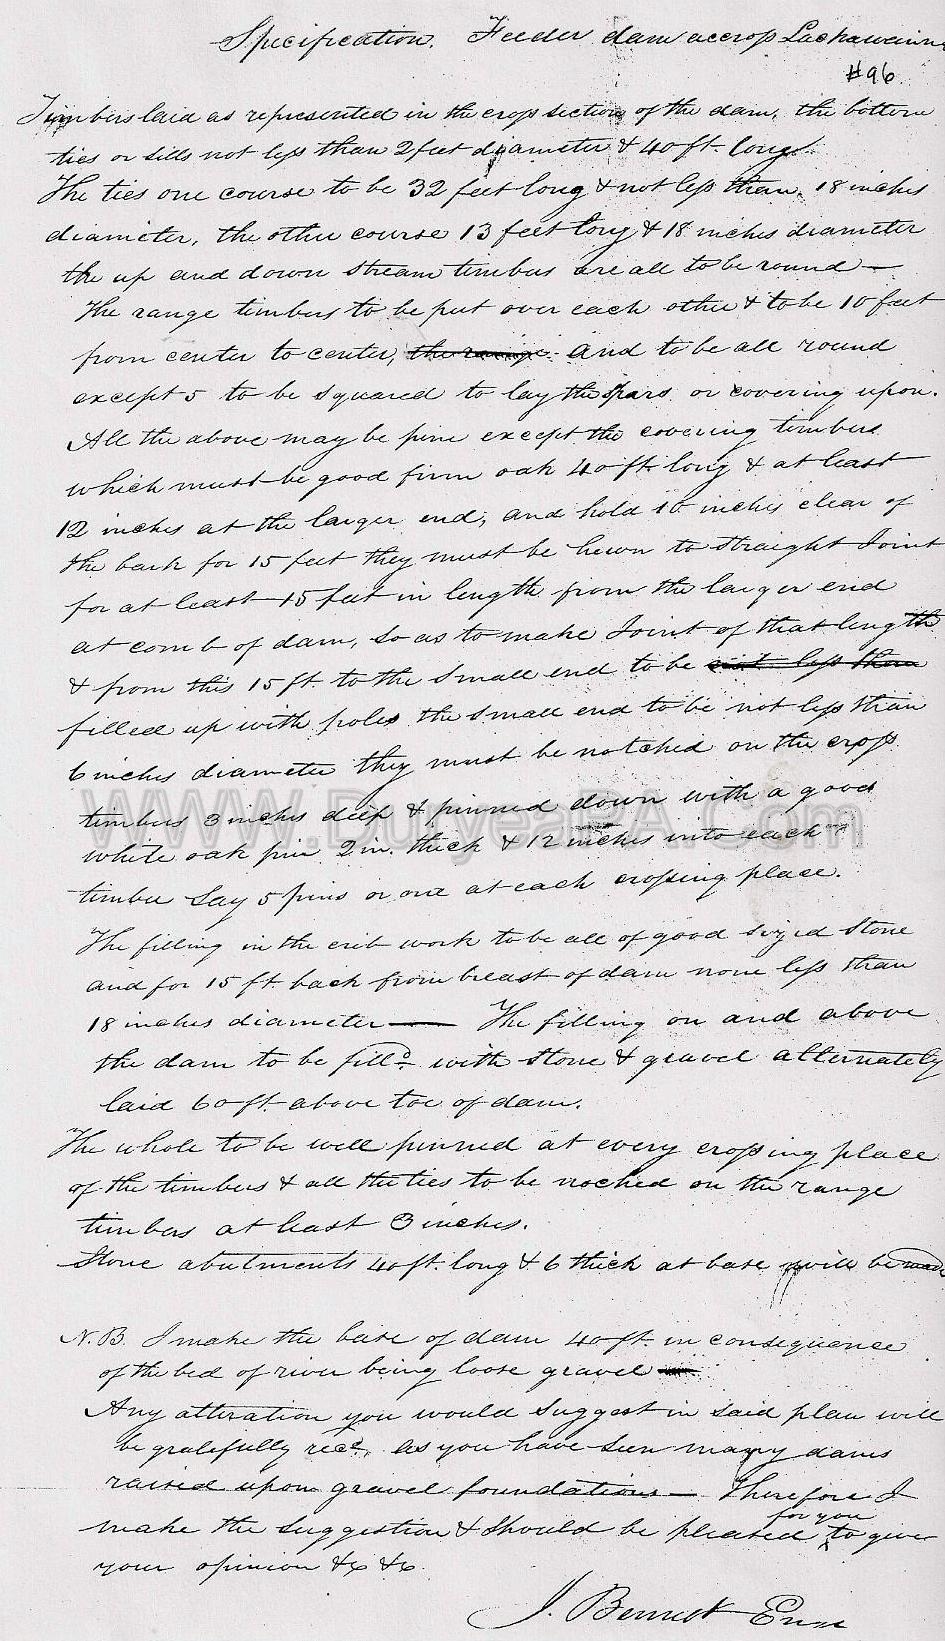 Specification. Feeder dam accross Lackawanna
#96
Timbers laid as represented in the cross section of the dam, the bottom
ties or sills not less than 2 feet diameter & 40 ft. long.
The ties one course to be 32 feet long & not less than 18 inches
diameter, the other course 13 feet long & 18 inches diameter
the up and down stream timbers are all to be round —
The range timbers to be put over each other & to be 10 feet
from center to center, the range and to be all round
except 5 to be squared to lay the spars or covering upon.
All the above may be pine except the covering timbers
which must be good firm oak 40 ft. long & at least
12 inches at the larger end, and hold 10 inches clear of
the bark for 15 feet they must be hewn to straight Joint
for at least 15 feet in length from the larger end
at comb of dam, so as to make Joint of that length
& from this 15 ft. to the small end to be not less than
filled up with poles the small end to be not less than
6 inches diameter they must be notched on the cross
timbers 3 inches deep & pinned down with a good
white oak pin 2 in. thick & 12 inches into each
timber say 5 pins or one at each crossing place.
The filling in the crib work to be all of good sized stone
and for 15 ft. back from breast of dam none less than
18 inches diameter — The filling on and above
the dam to be filld. with stone & gravel alternately
laid 60 ft. above toe of dam.
The whole to be well pinned at every crossing place
of the timbers & all the ties to be noched on the range
timbers at least 3 inches.
Stone abutments 40 ft. long & 6 thick at base will be made
N.B. I make the base of dam 40 ft. in consequence
of the bed of river being loose gravel
Any alteration you would suggest in said plan will
be gratefully recd. as you have seen many dams
raised upon gravel foundations — Therefore I
make the suggestion & should be pleased for you to give
your opinion &c &c.
J. Bennett Engr
WWW.DuryeaPA.Com